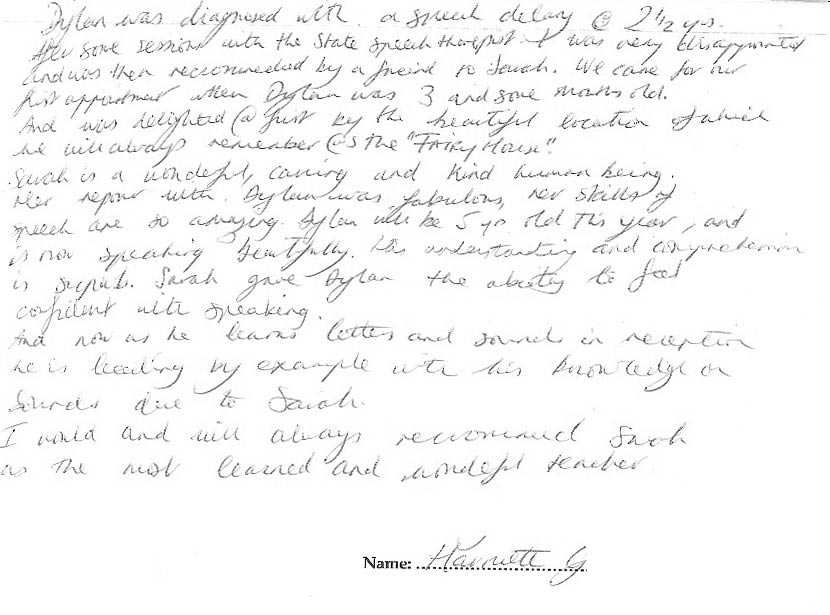 Dylan was diagnosed with a speech delay @ 2 1/2 yrs.
After some sessions with the State speech therapist I was very disappointed
and was then reccommeded by a freind to Sarah. We came for our
first appointment when Dylan was 3 and some months old.
And was delighted @ first by the beautiful location of which
he will always remember as the "Fairy House".
Sarah is a wonderful, caring and kind human being.
Her repour with Dylan was fabulous, her skills of
speech are so amazing. Dylan will be 5 yr old this year, and
is now speaking beautifully. his understanding and comprehension
is superb. Sarah gave Dylan the ability to feel
confident with speaking.
And now as he learns letters and sounds in reception
he is leading by example with his knowledge on
sounds due to Sarah.
I would and will always reccommend Sarah
as the most learned and wonderful teacher.
Name: Harriett G